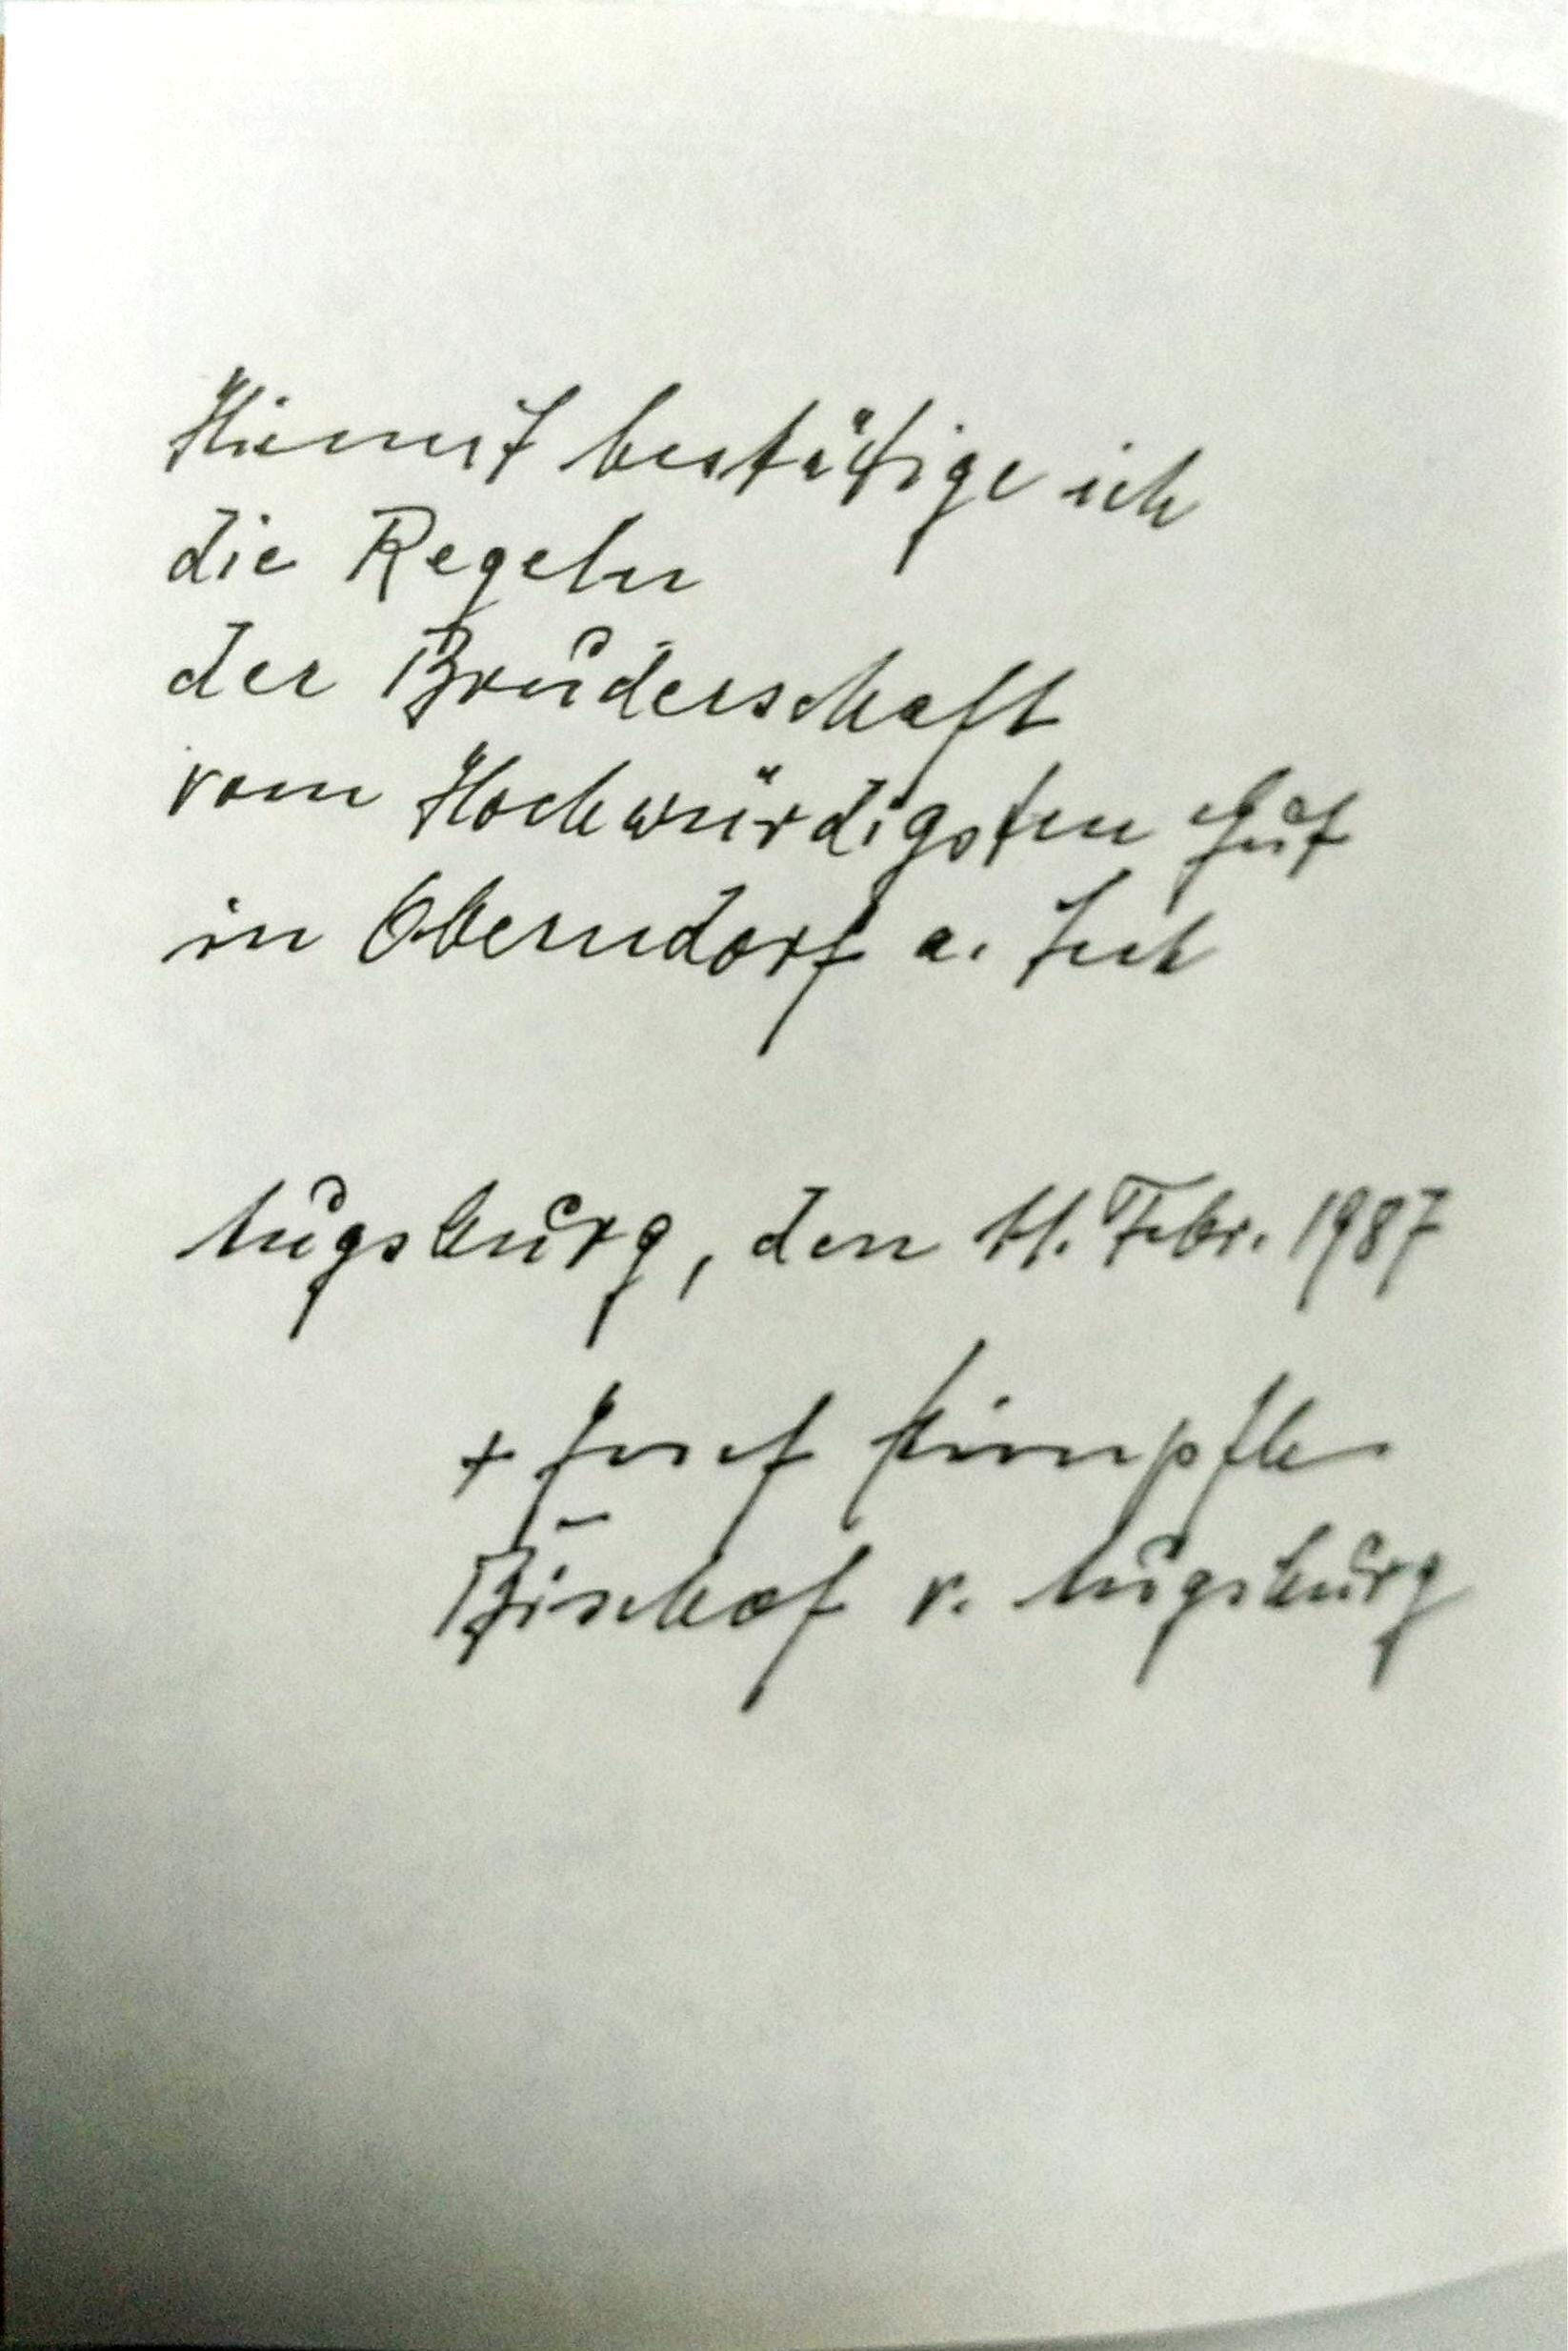 Hiemit bestätige ich
die Regeln
der Bruderschaft
vom Hochwürdigsten Gut
in Oberndorf a. Lech
Augsburg, den 11. Febr. 1987
+ Josef Stimpfle
Bischof v. Augsburg